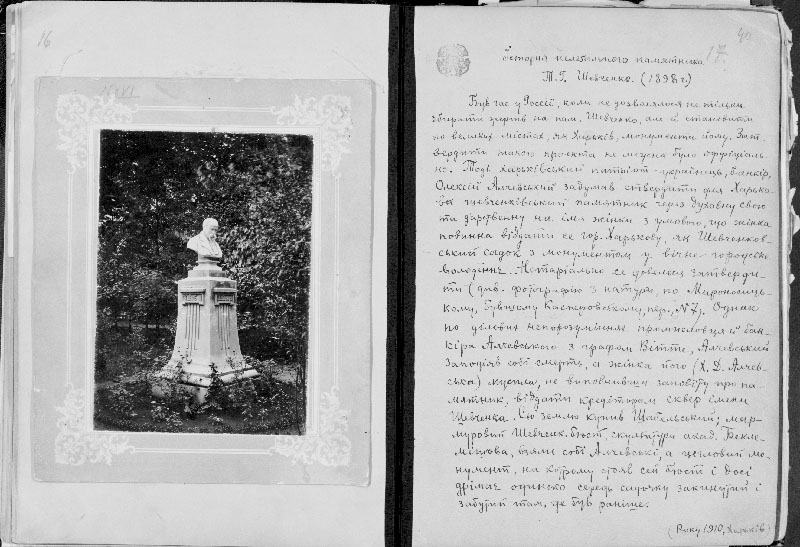 16
XVI
17.
Історія нелегального памятника
Т. Г. Шевченко. (1898 г.)
Був час у Россії, коли не дозволялося не тільки
збирати жертв на пам. Шевченко, але й становити
по великих містах, як Харьків, монументи йому. Зат-
вердити такого проєкта не можна було оффіціаль-
но. Тоді Харьківський патріот-українець, банкір,
Олексій Алчевський забумав ствердити для Харько-
ва шевченківський памятник через духовну свою
та дарственну на імя жінки з умовою, що жінка
повинна віддати се гор. Харькову, як Шевченков-
ський садок з монументом у вічне городське
володіннє. Нотаріально се довелось затверди-
ти (див. фотографію з натури, по Мироносиць-
кому, бувшому Касперовському, пер., №7). Однак
по ділових непорозуміннях промисловця й бан-
кіра Алчевського з графом Вітте, Алчевський
заподіяв собі смерть, а жінка його (Х. Д. Алчев-
ська) мусела, не виповнивши заповіту про па-
мятник, віддати кредіторам сквер імени
Шевченка. Сю землю купив мар-
муровий Шевченк. бюст, скульптура акад. Бекле-
мішова, взяли собі Алчевські, а цегловий мо-
нумент, на котрому стояв сей бюст і досі
дрімає одиноко середь садочку закинутий і
забутий там, де був раніше.
(Року 1910, Харьків)